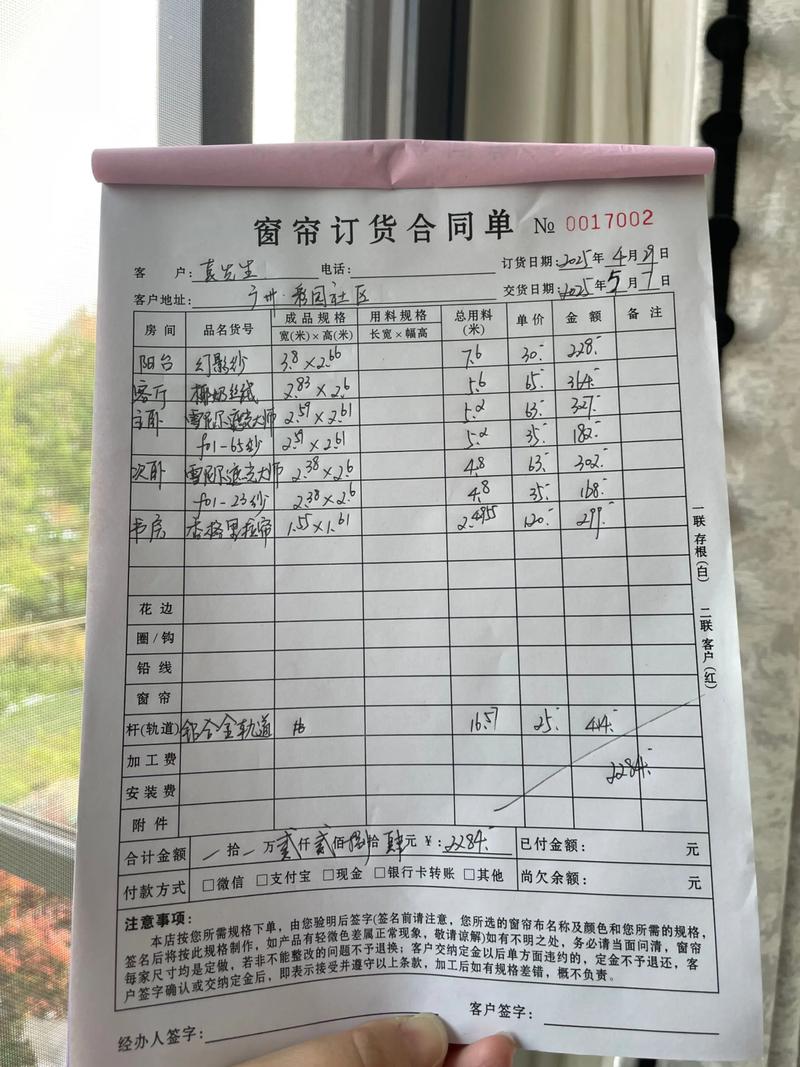 窗帘订货合同单 № 0017002
客 户：袁先生 电话： 订货日期：2025年4月29日
客户地址：广州·秀园社区 交货日期：2025年5月7日
房 间 品名货号 成品规格 宽(米)×高(米) 用料规格 长宽×幅高 总用料(米) 单 价 金 额 备 注
阳台 幻影纱 3.8×2.66 7.6 30.- 228.-
客厅 椰奶丝绒 2.83×2.6 5.6 65.- 364.-
主卧 雪尼尔遮光大师 2.59×2.61 5.2 63.- 327.-
f01-65纱 2.59×2.61 5.2 35.- 182.-
次卧 雪尼尔遮光大师 2.38×2.6 4.8 63.- 302.-
f01-23纱 2.38×2.6 4.8 35.- 168.-
书房 香格里拉帘 1.55×1.61 2.4955 120.- 299.-
花 边
圈/钩
铅 线
窗 帘
杆(轨道) 铝合金轨道 16.57 25.- 414.-
加工费 2284.-
安装费
附 件
合计金额 一拾一万贰仟贰佰捌拾肆元 ￥：2284.- 已付金额： 元
付款方式 □微信 □支付宝 □现金 □银行卡转账 □其他 尚欠余额： 元
注意事项：
本店按您所需规格下单，由您验明后签字(签名前请注意，您所选的窗帘布名称及颜色和您所需的规格，
签名后将按此规格制作，如产品有轻微色差属正常现象，敬请谅解)如有不明之处，务必请当面问清，窗帘
每家尺寸均是定做，若非不能整改的问题不予退换；客户交纳定金以后单方面违约的，定金不予退还，客
户签字确认或交纳定金后，即表示接受并遵守以上条款，加工后如有规格差错，概不负责。
经办人签字： 客户签字：
一联 存根(白)
二联 客户(红)